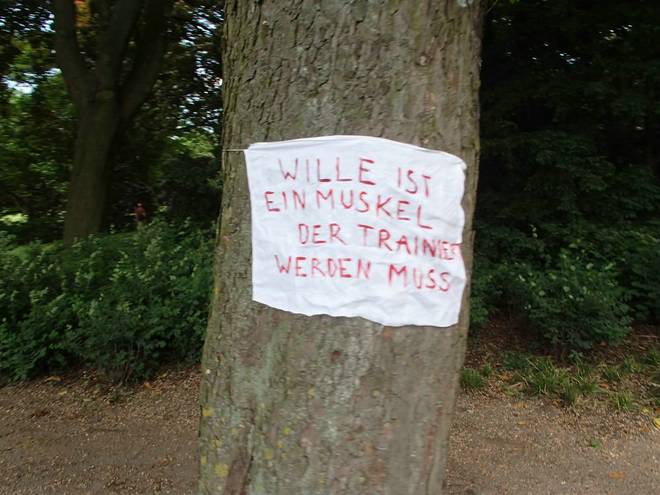 WILLE IST
EIN MUSKEL
DER TRAINIERT
WERDEN MUSS